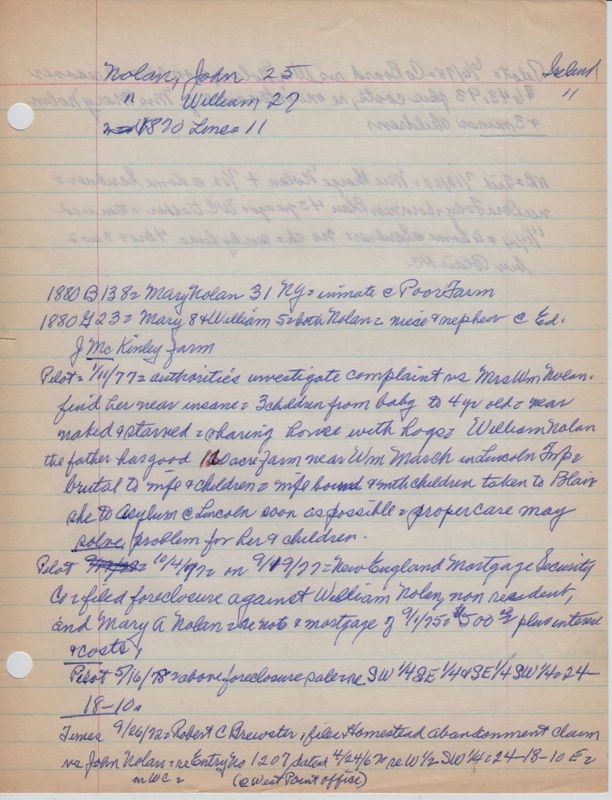 Nolan, John 25 Ireland
" William 27 "
1870 Line = 11
1880 B138 = Mary Nolan 31 NY = inmate @ Poor Farm
1880 G23 = Mary 8 & William 5 = both Nolan = niese & nephew @ Ed.
J McKinley farm
Pilot = 1/11/77 = authorities investigate complaint vs Mrs Wm Nolan.
find her near insane = 3 children from baby to 4 yr old = near
naked & starved = sharing house with hogs = William Nolan
the father has good 120 acre farm near Wm March in Lincoln Twp =
brutal to wife & children = wife bound & with children taken to Blair
she to asylum @ Lincoln soon as possible = proper care may
solve problem for her & children.
Pilot 10/4/77 = on 9/19/77 = New England Mortgage Security
Co = filed foreclosure against William Nolan, non resident,
and Mary A Nolan = re note & mortgage of 9/1/75 = $500 plus interest
& costs,
Pilot 5/16/78 = above foreclosure sale re SW 1/4 SE 1/4 & SE 1/4 SW 1/4 = 24-
18-10.
Times 9/26/72 = Robert C Brewster, files Homestead abandonment claim
vs John Nolan = re Entry No 1207 dated 4/24/67 re W 1/2 SW 1/4 = 24-18-10 E =
in WC = (@ West Point office)